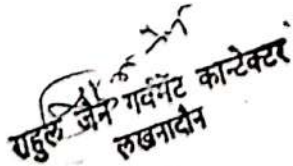 राहुल जैन गर्वमेंट कान्टेक्टर
लखनादौन